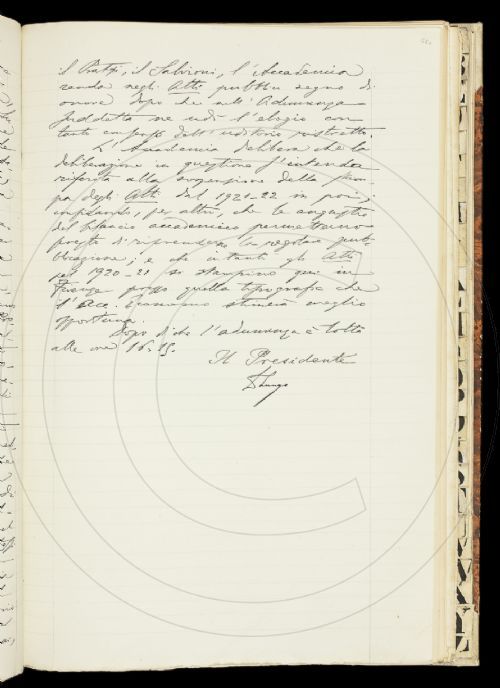 il Prati, il Salvioni, l'Accademia
renda negli Atti pubblico segno di
onore dopo che nell'Adunanza
suddetta ne udì l'elogio con
tanto dell'uditorio
L'Accademia delibera che la
deliberazione in questione s'intenda
riferita alla sospensione della stam-
pa degli Atti dal 1921-22 in poi,
per altro, che le angustie
del bilancio accademico permettano
presto di riprendere la regolare pub-
blicazione; e che intanto gli Atti
pel 1920-21 si stampino qui in
Firenze presso quella tipografia che
l'Acc. Economo stimerà meglio
opportuna.
Dopo di che l'adunanza è tolta
alle ore 16.15.
Il Presidente